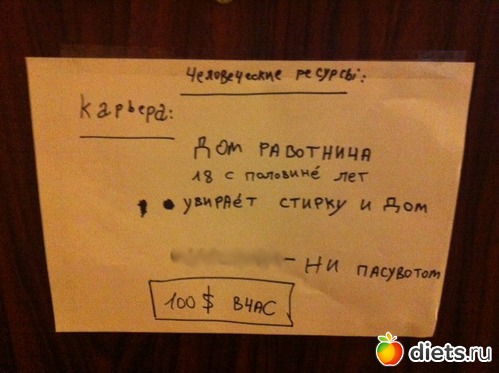 Человеческие ресурсы:
Карьера:
ДОМ РАБОТНИЧА
18 с половине лет
увираёт стирку и дом
– НИ ПАСУВОТОМ
100 $ вчас
diets.ru